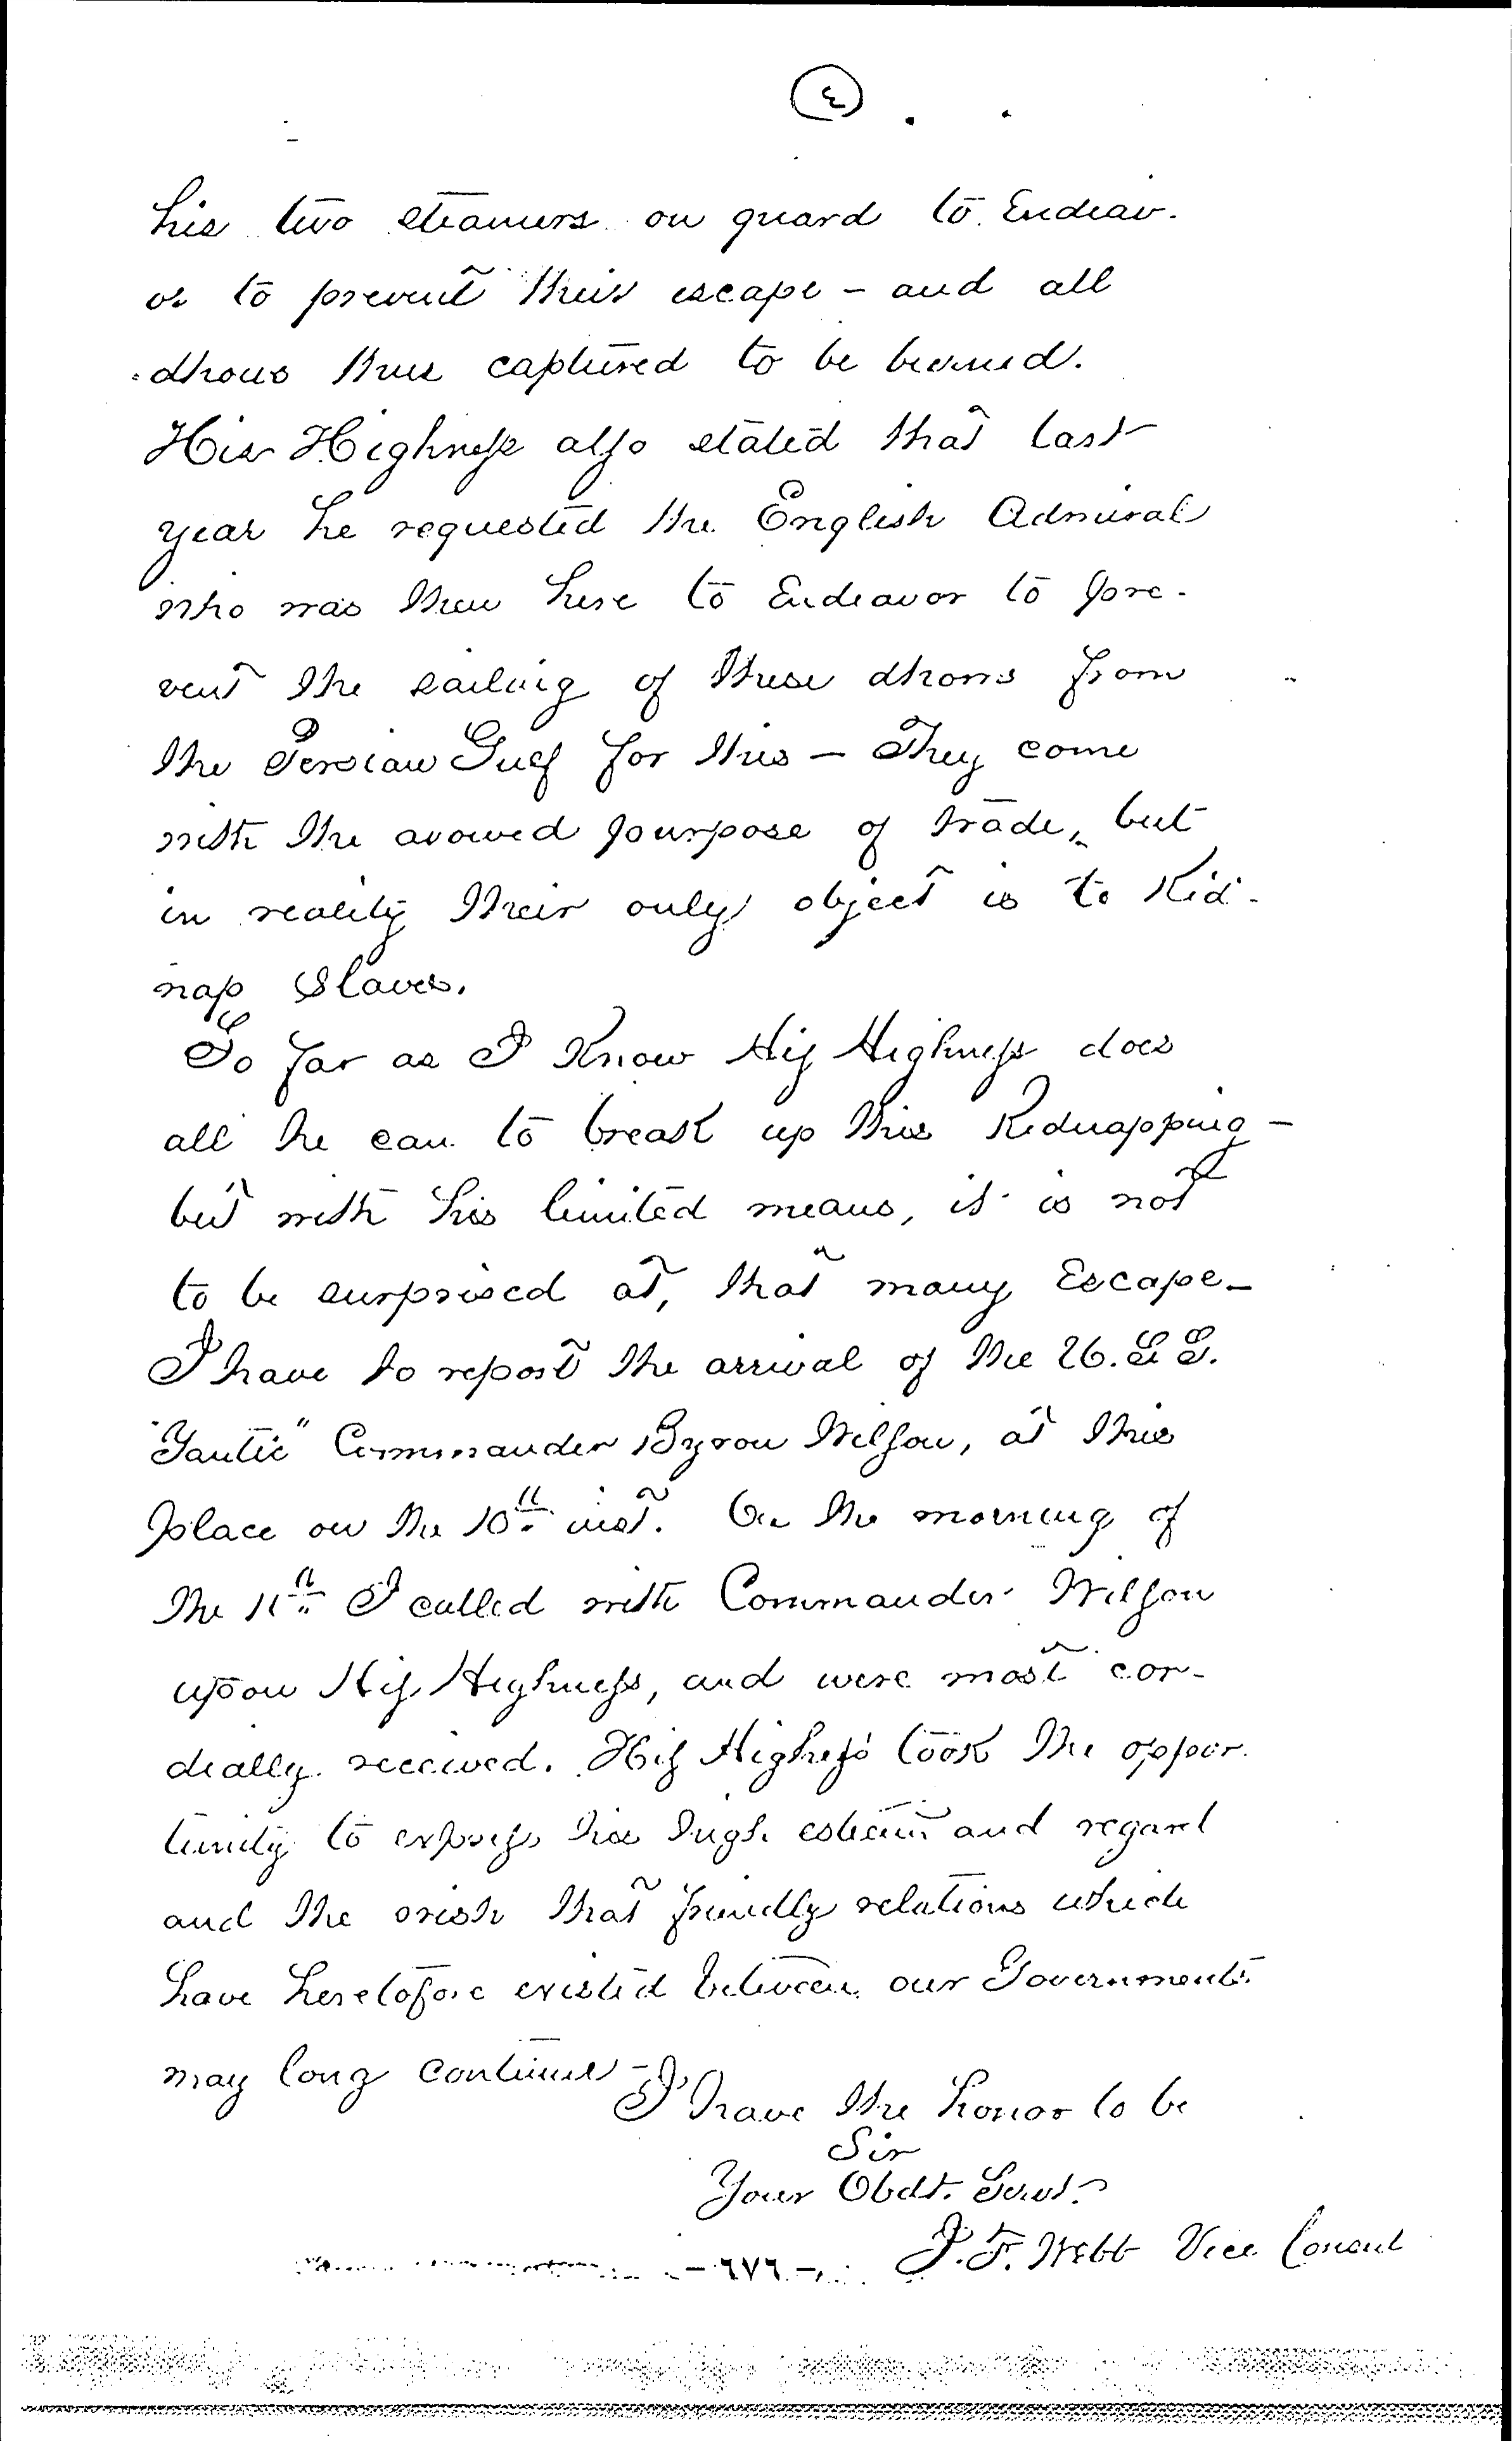 ٤
his two steamers on guard to Endeav-
or to prevent their escape – and all
dhows thus captured to be burned.
His Highness also stated that last
year he requested the English Admiral
who was then here to Endeavor to pre-
vent the sailing of these dhows from
the Persian Gulf for this – They come
with the avowed purpose of trade, but
in reality their only object is to Kid-
nap Slaves.
So far as I Know His Highness does
all he can to break up this Kidnapping –
but with his limited means, it is not
to be surprised at, that many Escape –
I have to report the arrival of the U.S.S.
"Yantic" Commander Byron Wilson, at this
place on the 10th inst. On the morning of
the 11th I called with Commander Wilson
upon His Highness, and were most cor-
dially received. His Highness took the oppor-
tunity to express his high esteem and regard
and the wish that friendly relations which
have heretofore existed between our Governments
may long continue –
I have the honor to be
Sir
Your Obdt. Servt.
F. Webb Vice Consul
– ٦٧٦ –